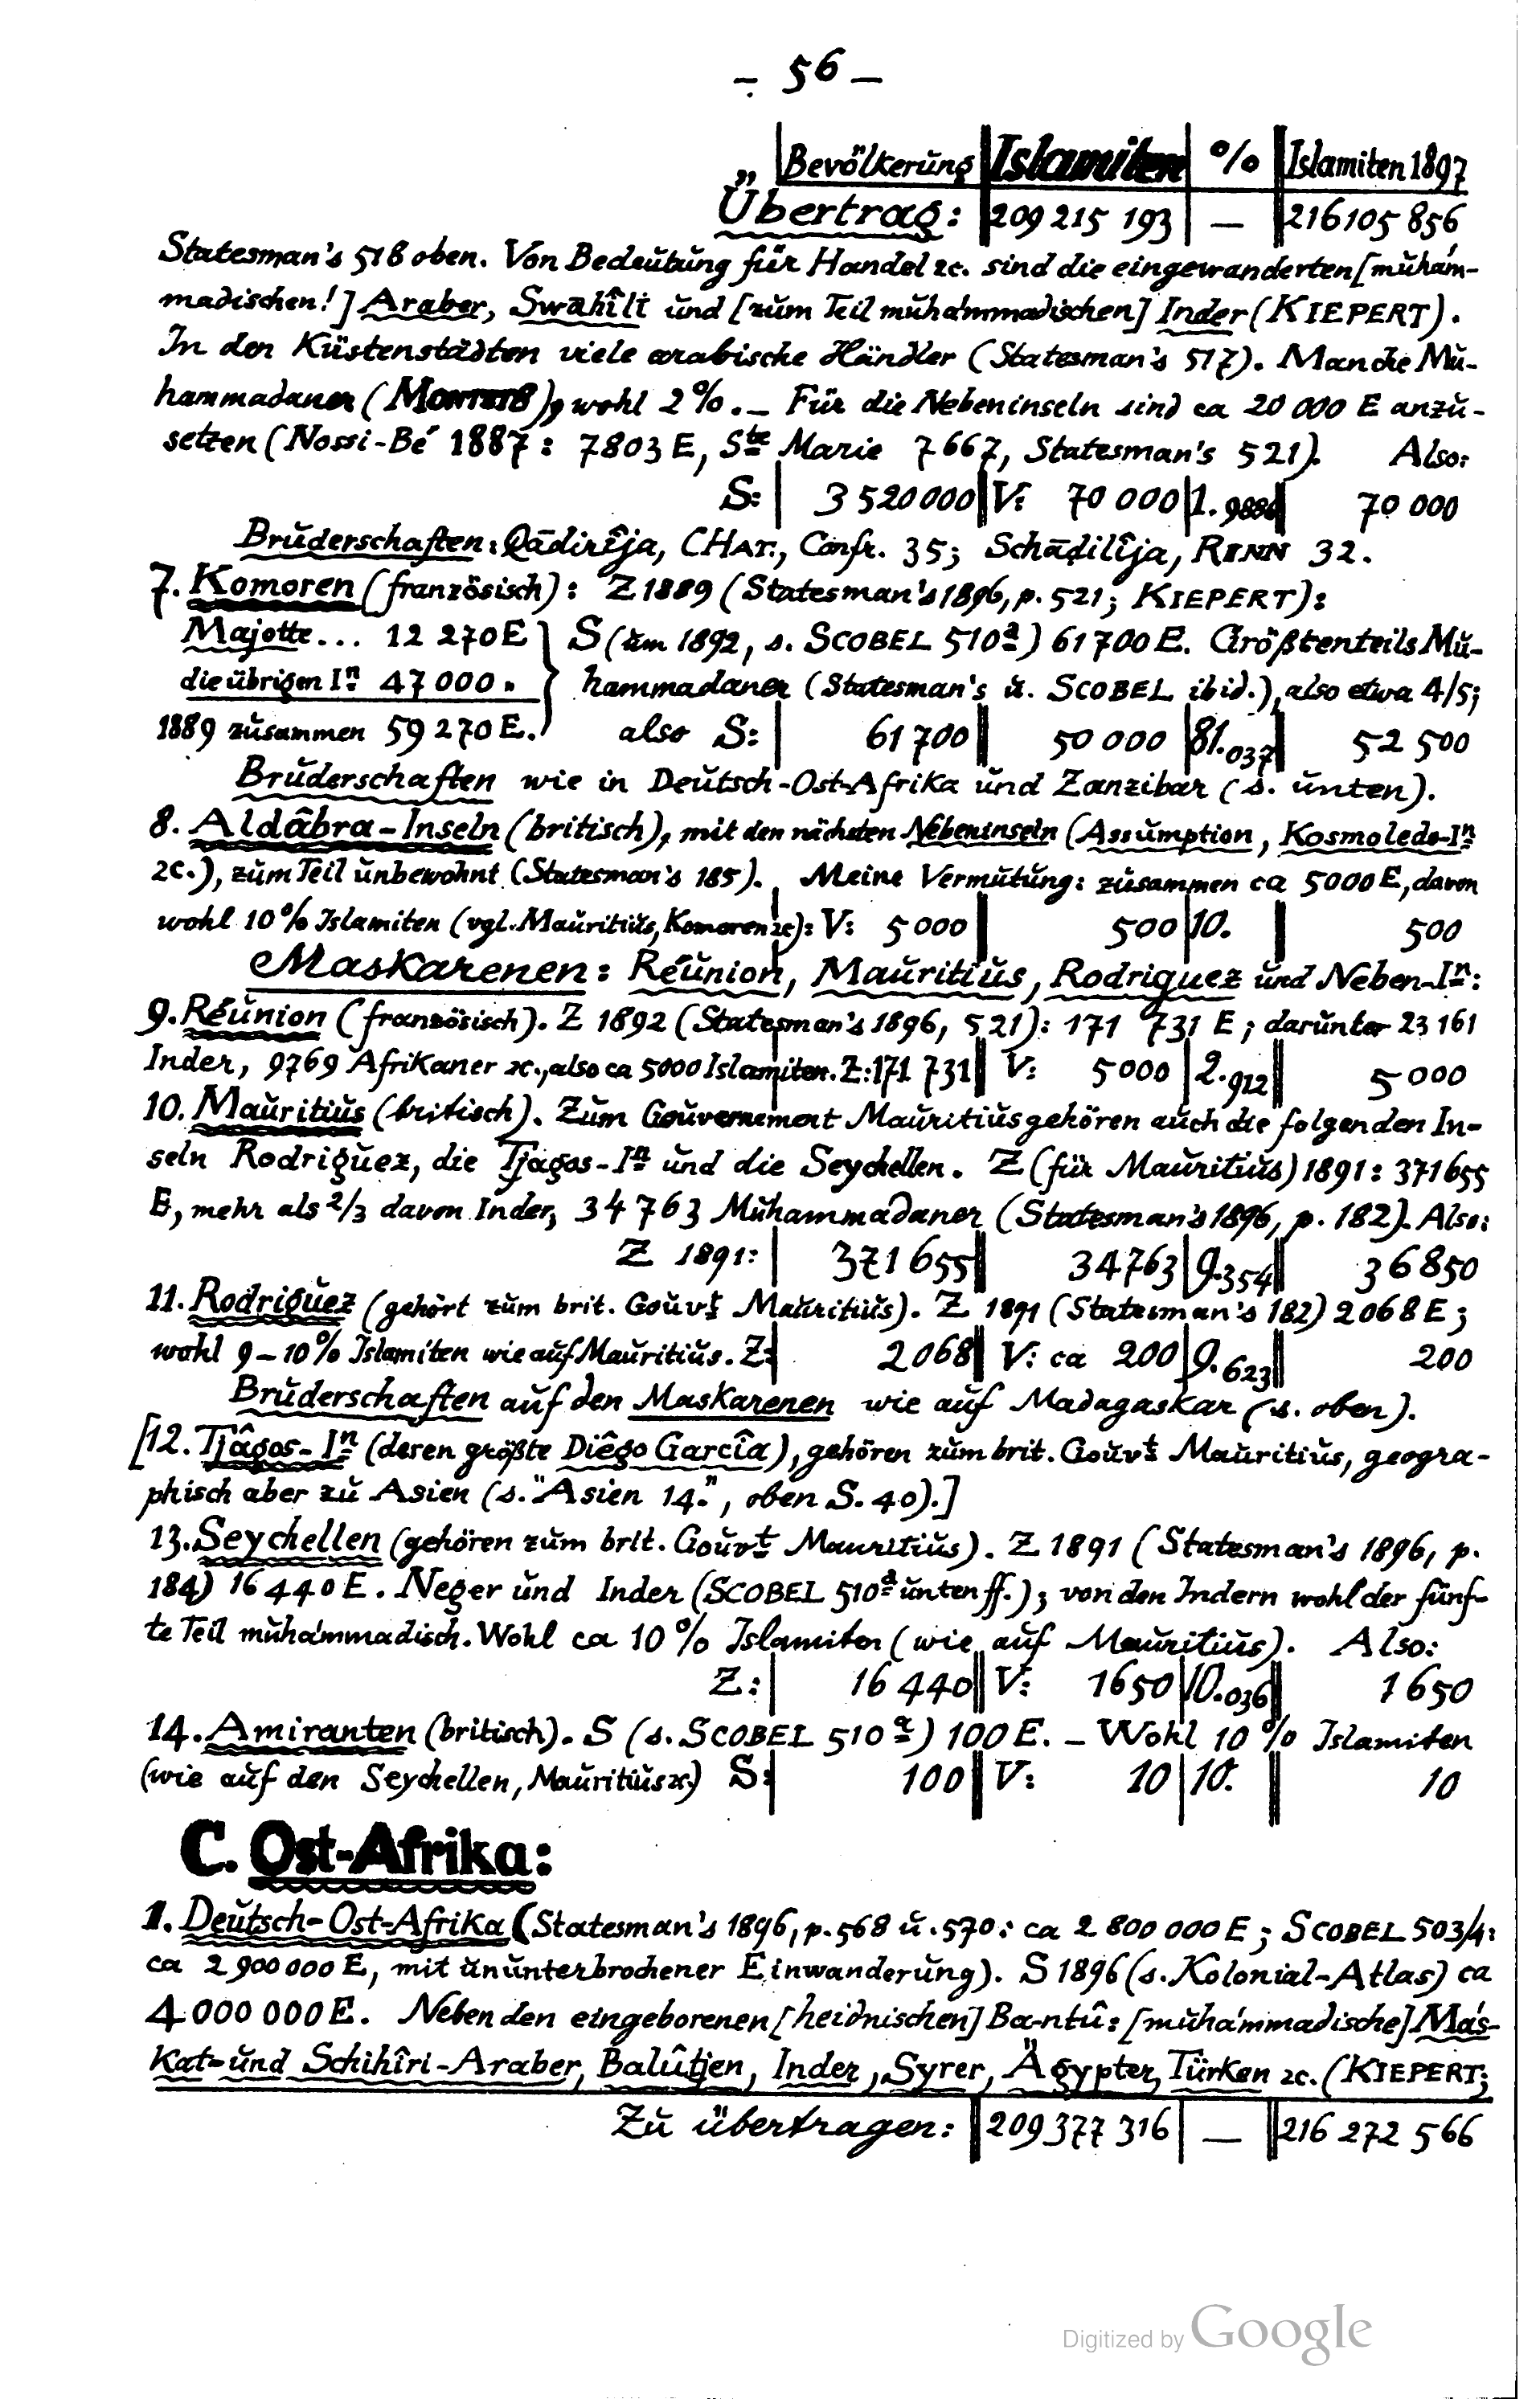 – 56 –
Bevölkerung Islamiten % Islamiten 1897
Übertrag: 209 215 193 — 216 105 856
Statesman's 518 oben. Von Bedeutung für Handel ꝛc. sind die eingewanderten [muhám-
madischen!] Araber, Swahîli und [zum Teil muhámmadischen] Inder (KIEPERT).
In den Küstenstädten viele arabische Händler (Statesman's 517). Manche Mu-
hammadaner ( ), wohl 2%. – Für die Nebeninseln sind ca 20 000 E anzu-
setzen (Nossi-Bé 1887: 7803 E, Ste Marie 7667, Statesman's 521). Also:
S: 3 520 000 V: 70 000 1.9886 70 000
Bruderschaften: Qādirîja, CHAT., Confr. 35; Schāḍilîja, RINN 32.
7. Komoren (französisch): Z 1889 (Statesman's 1896, p. 521; KIEPERT):
Majotte... 12 270 E } S (um 1892, s. SCOBEL 510a) 61 700 E. Größtenteils Mu-
die übrigen In 47 000 " hammadaner (Statesman's u. SCOBEL ibid.), also etwa 4/5;
1889 zusammen 59 270 E. also S: 61 700 50 000 81.037 52 500
Bruderschaften wie in Deutsch-Ost-Afrika und Zanzibar (s. unten).
8. Aldâbra-Inseln (britisch), mit den nächsten Nebeninseln (Assumption, Kosmoledo-In
ꝛc.), zum Teil unbewohnt (Statesman's 185). Meine Vermutung: zusammen ca 5000 E, davon
wohl 10% Islamiten (vgl. Mauritius, Komoren ꝛc): V: 5 000 500 10. 500
Maskarenen: Réunion, Mauritius, Rodriguez und Neben-In:
9. Réunion (französisch). Z 1892 (Statesman's 1896, 521): 171 731 E; darunter 23 161
Inder, 9769 Afrikaner ꝛc., also ca 5000 Islamiten. Z: 171 731 V: 5 000 2.912 5 000
10. Mauritius (britisch). Zum Gouvernement Mauritius gehören auch die folgenden In-
seln Rodriguez, die Tjagos-In und die Seychellen. Z (für Mauritius) 1891: 371 655
E, mehr als 2/3 davon Inder, 34 763 Muhammadaner (Statesman's 1896, p. 182). Also:
Z 1891: 371 655 34 763 9.354 36 850
11. Rodriguez (gehört zum brit. Gouvt Mauritius). Z 1891 (Statesman's 182) 2068 E;
wohl 9–10% Islamiten wie auf Mauritius. Z: 2068 V: ca 200 9.623 200
Bruderschaften auf den Maskarenen wie auf Madagaskar (s. oben).
[12. Tjâgos-In (deren größte Diêgo Garcîa), gehören zum brit. Gouvt Mauritius, geogra-
phisch aber zu Asien (s. "Asien 14.", oben S. 40).]
13. Seychellen (gehören zum brit. Gouvt Mauritius). Z 1891 (Statesman's 1896, p.
184) 16 440 E. Neger und Inder (SCOBEL 510a unten ff.); von den Indern wohl der fünf-
te Teil muhámmadisch. Wohl ca 10% Islamiten (wie auf Mauritius). Also:
Z: 16 440 V: 1650 10.036 1650
14. Amiranten (britisch). S (s. SCOBEL 510a) 100 E. – Wohl 10% Islamiten
(wie auf den Seychellen, Mauritius ꝛc.) S: 100 V: 10 10. 10
C. Ost-Afrika:
1. Deutsch-Ost-Afrika (Statesman's 1896, p. 568 u. 570: ca 2 800 000 E; SCOBEL 503/4:
ca 2 900 000 E, mit ununterbrochener Einwanderung). S 1896 (s. Kolonial-Atlas) ca
4 000 000 E. Neben den eingeborenen [heidnischen] Ba-ntû: [muhámmadische] Más-
kat- und Schihîri-Araber, Balûtjen, Inder, Syrer, Ägypter, Türken ꝛc. (KIEPERT;
Zu übertragen: 209 377 316 — 216 272 566
Digitized by Google